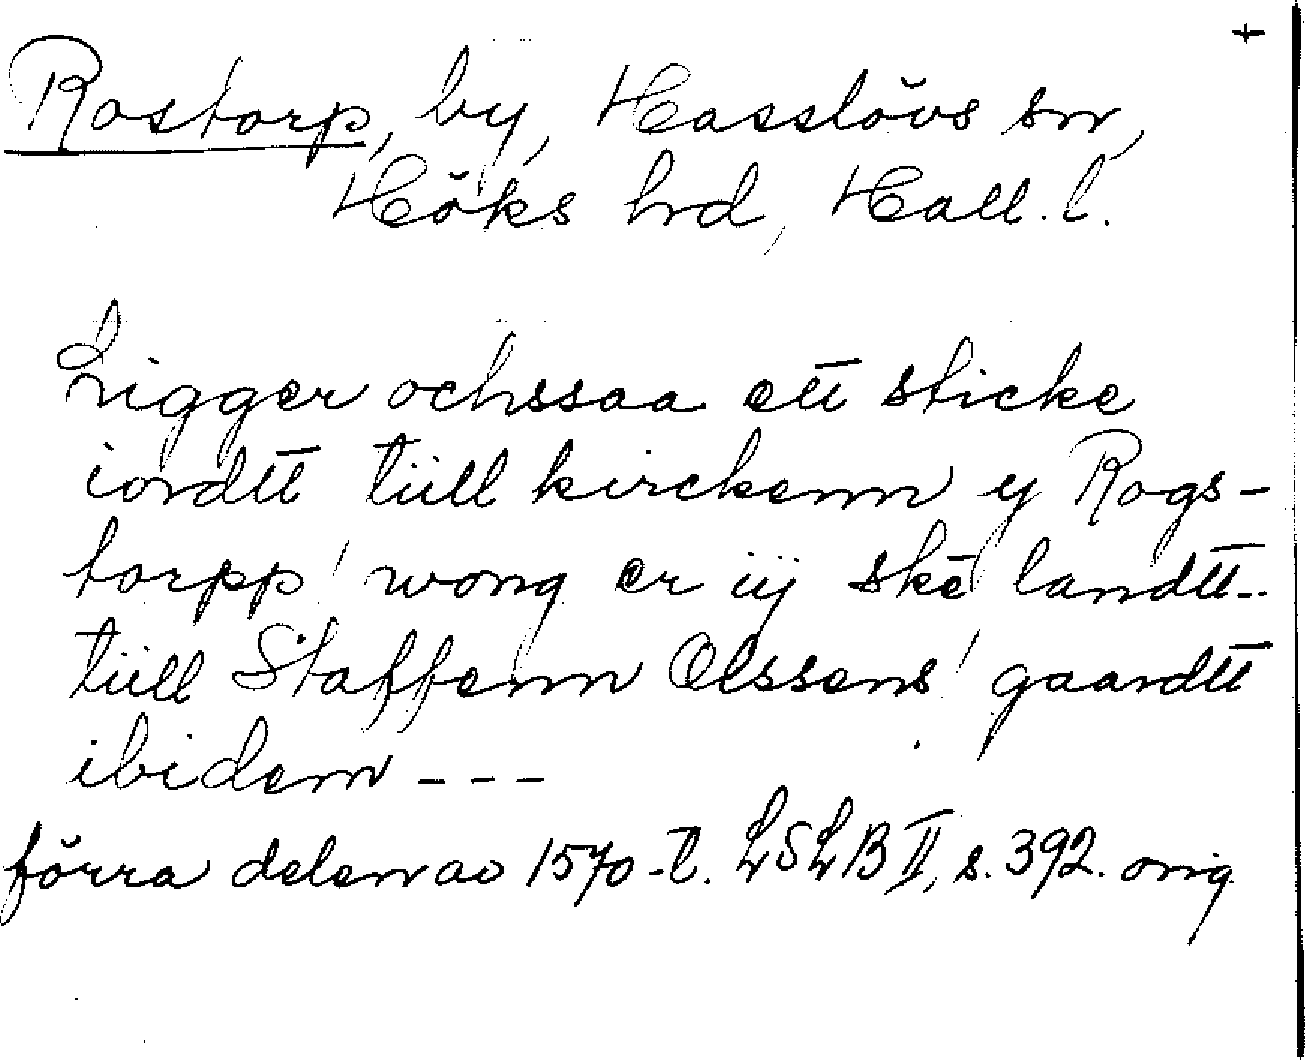 +
Rostorp, by, Hasslövs sn,
Höks hrd, Hall. l.
Ligger ochssaa ett sticke
iordtt tiill kirckenn y Rogs-
torpp! wong er iij ske! landtt-
tiill Staffenn Olssens! gaardtt
ibidem ---
förra delen av 1570-t. LSLB II, s. 392. orig